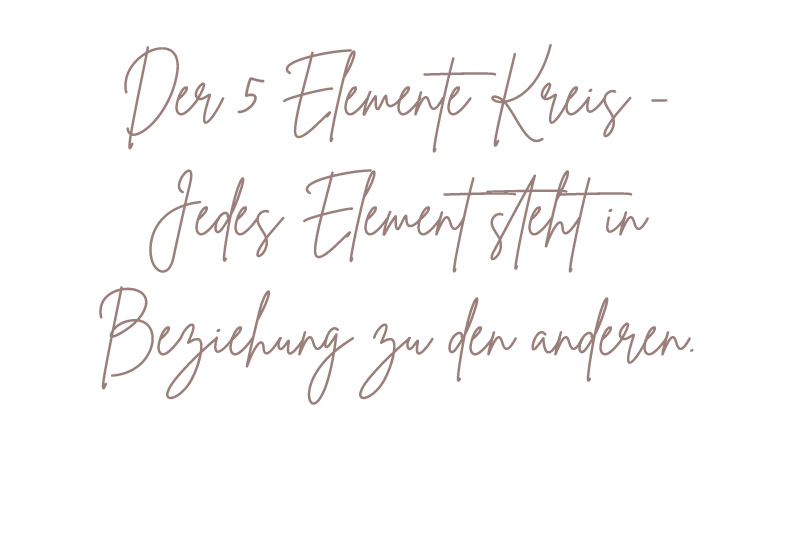 Der 5 Elemente Kreis -
Jedes Element steht in
Beziehung zu den anderen.